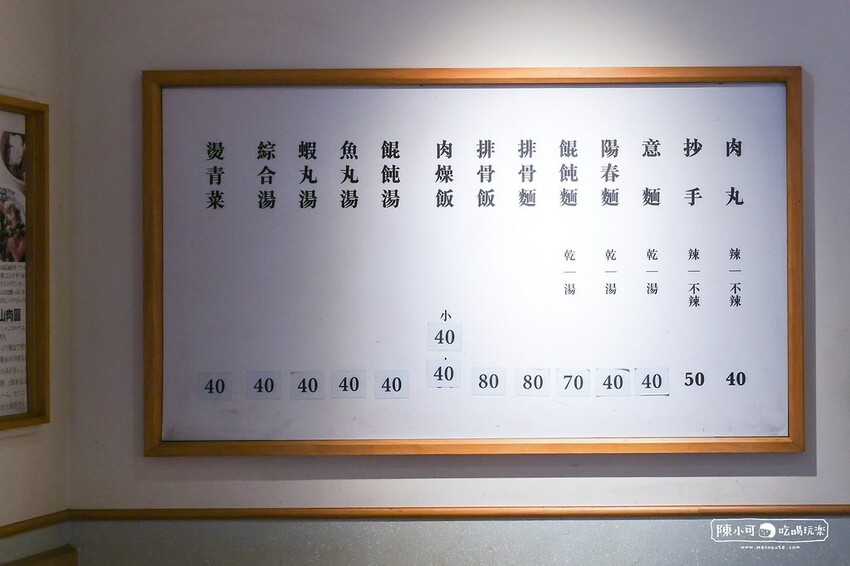 肉丸 辣｜不辣 40
抄手 辣｜不辣 50
意麵 乾｜湯 40
陽春麵 乾｜湯 40
餛飩麵 乾｜湯 70
排骨麵 80
排骨飯 80
肉燥飯 小40．40
餛飩湯 40
魚丸湯 40
蝦丸湯 40
綜合湯 40
燙青菜 40
山肉圓
陳小可 吃喝玩樂
www.mecocute.com